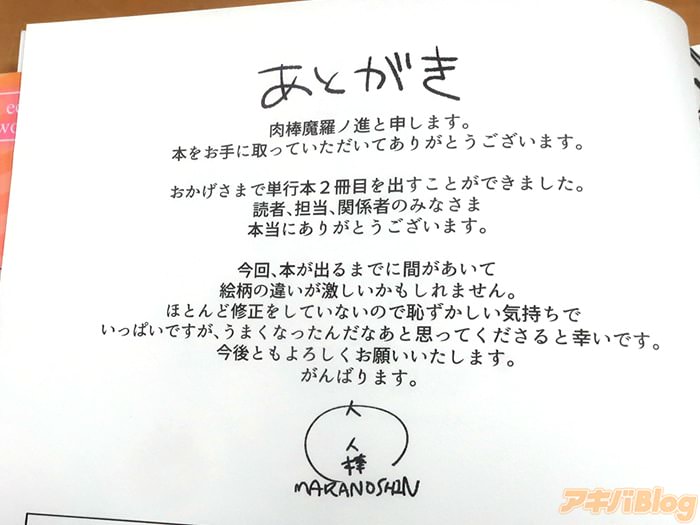 あとがき
肉棒魔羅ノ進と申します。
本をお手に取っていただいてありがとうございます。
おかげさまで単行本2冊目を出すことができました。
読者、担当、関係者のみなさま
本当にありがとうございます。
今回、本が出るまでに間があいて
絵柄の違いが激しいかもしれません。
ほとんど修正をしていないので恥ずかしい気持ちで
いっぱいですが、うまくなったんだなあと思ってくださると幸いです。
今後ともよろしくお願いいたします。
がんばります。
人
人
棒
MARANOSHIN
アキバBlog